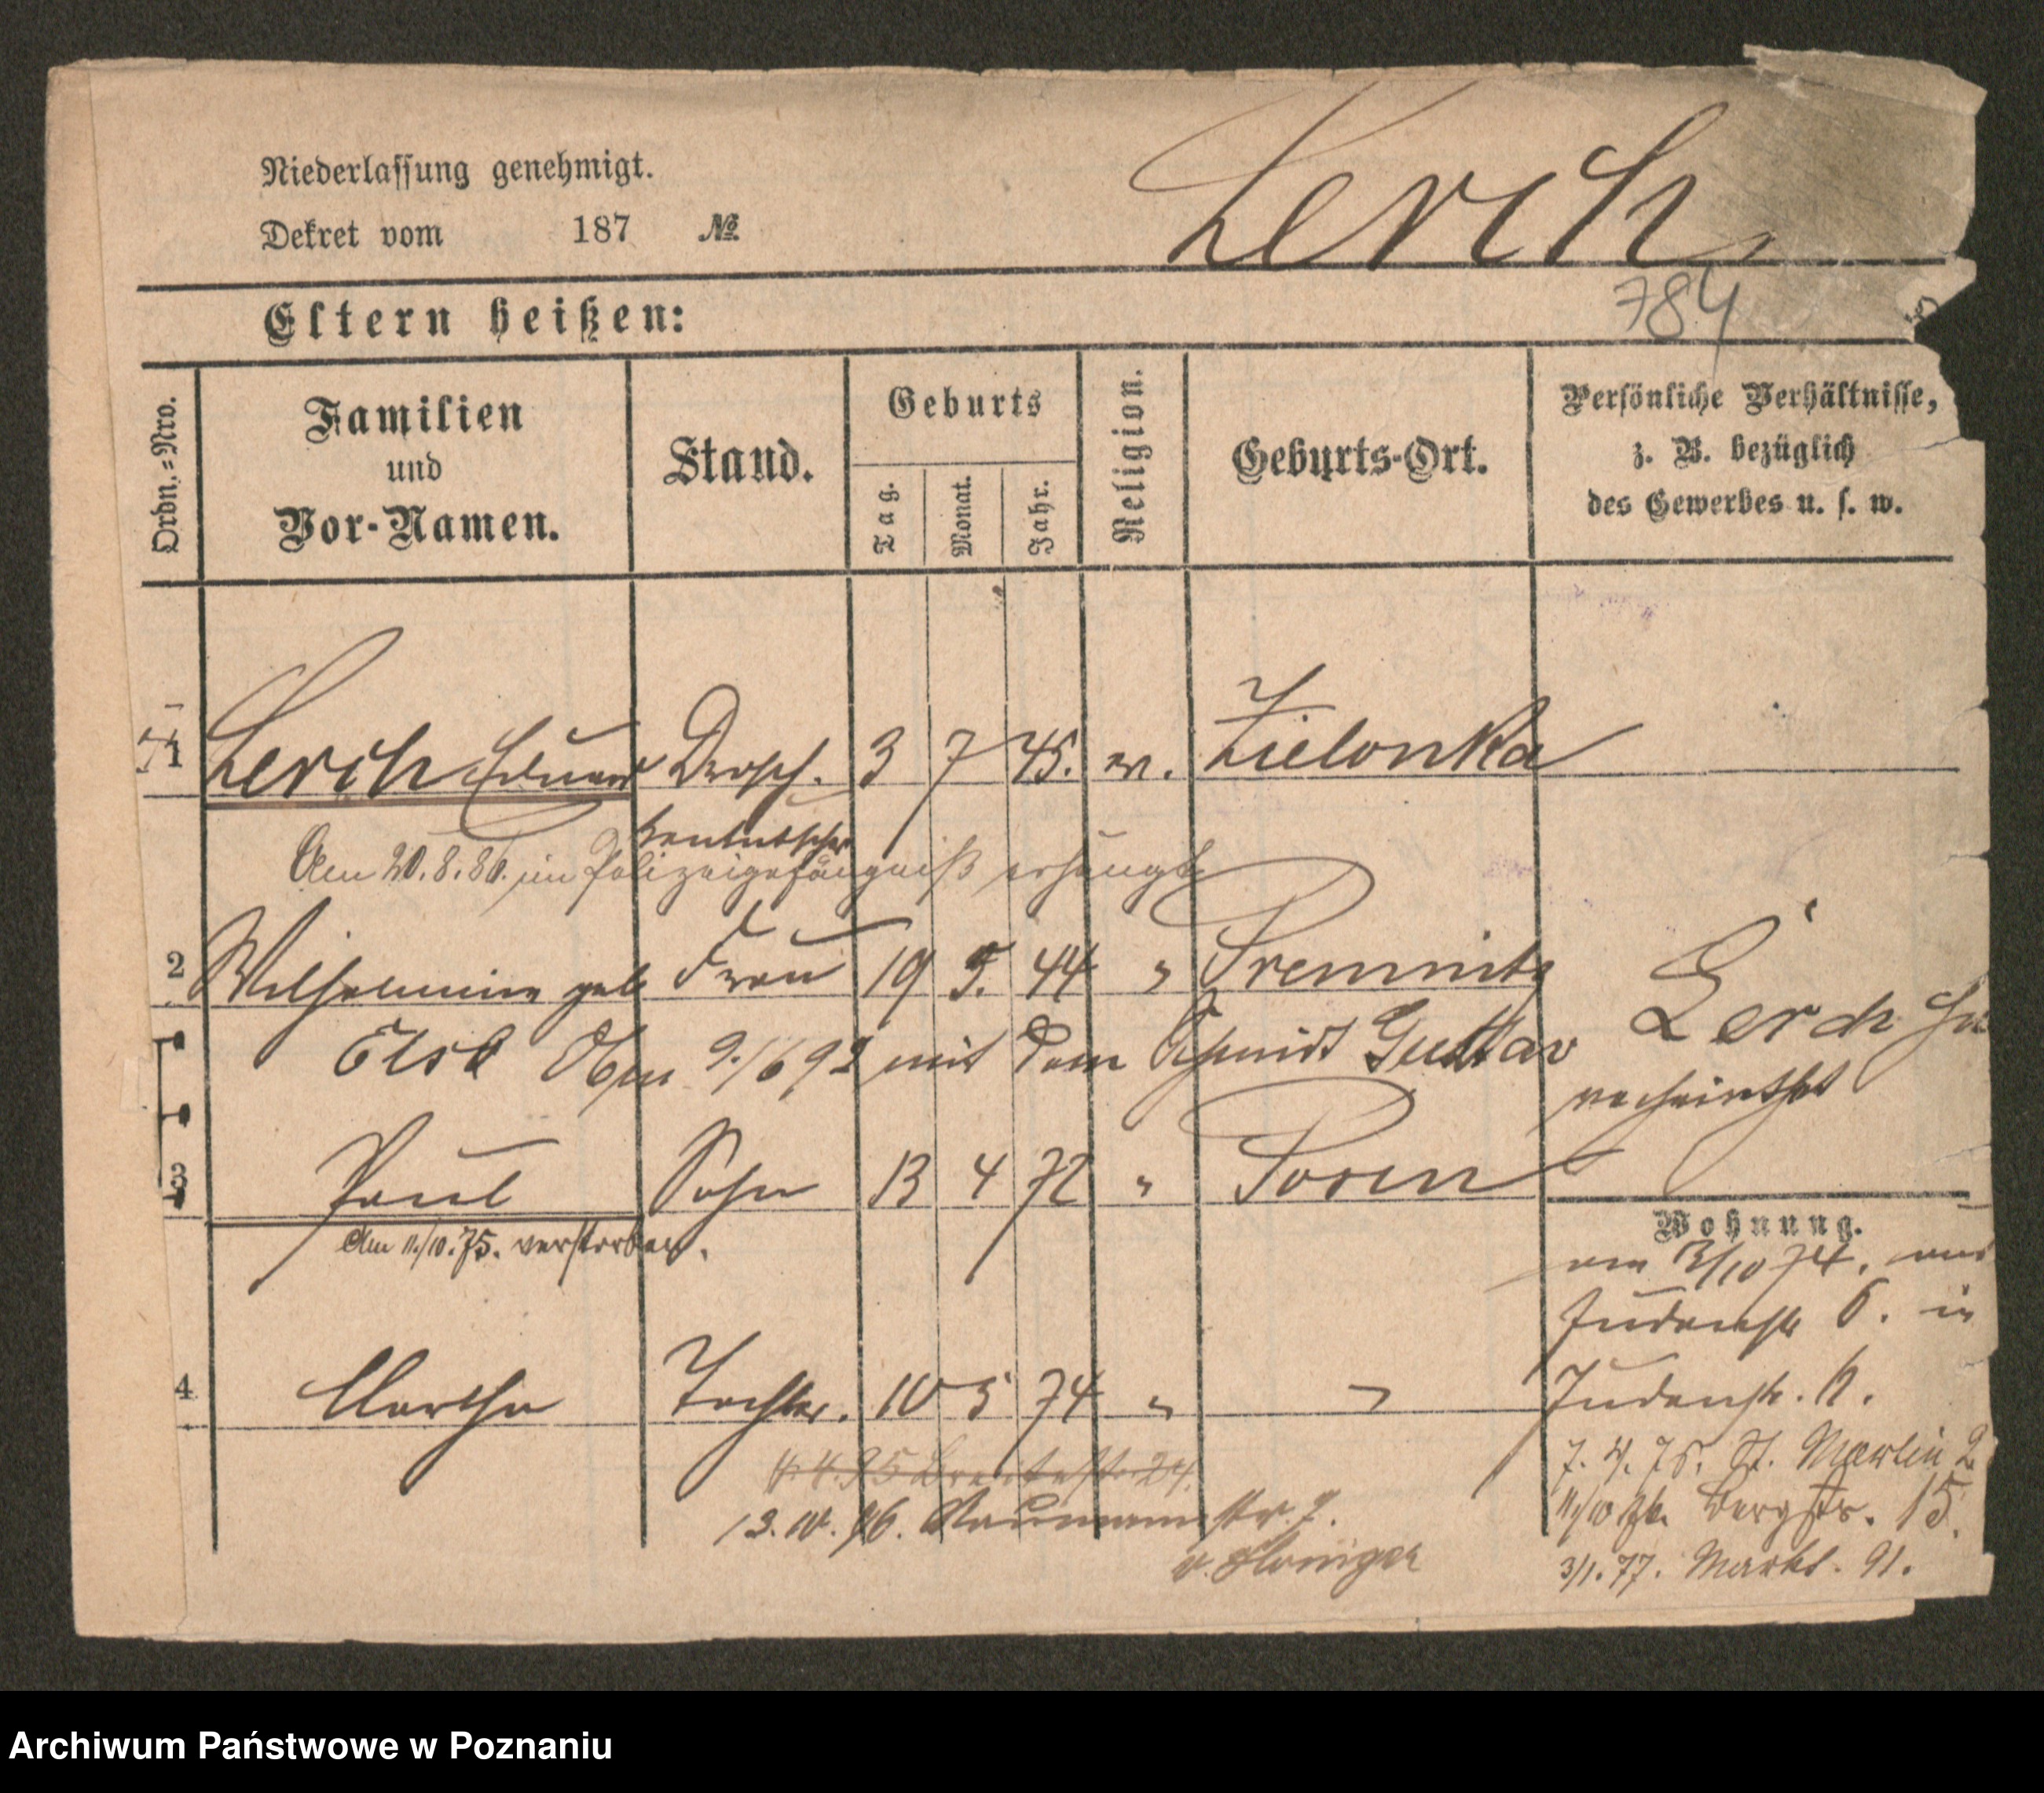 Niederlassung genehmigt.
Dekret vom 187 №
Lerch
784
Eltern heißen:
Ordn.=Nro.
Familien
und
Vor-Namen.
Stand.
Geburts
Tag.
Monat.
Jahr.
Religion.
Geburts-Ort.
Persönliche Verhältnisse,
z. B. bezüglich
des Gewerbes u. s. w.
1 Lerch Eduard Drosch. 3 7 45. ev. Zielonka
kenkutscher
Am 20.8.86. im Polizeigefängniß erhängt
2 Wilhelmine geb Frau 19 44 " Premnitz
9./6 92 mit dem Schmidt Gustav Lerch
verheirathet
3 Paul Sohn 13 4 72 " Posen
Am 11./10.75. verstorben.
Wohnung.
am 3/10 74. aus
Judenstr 6. in
4 Martha Tochter. 10 5 74 " "
Judenstr.
7. 4. 75. St. Martin 2
4. 4. 95 Breitestr. 24.
Bergstr. 15.
13. IV. 96. Naumannstr.
3/1. 77. Markt. 91.
Archiwum Państwowe w Poznaniu